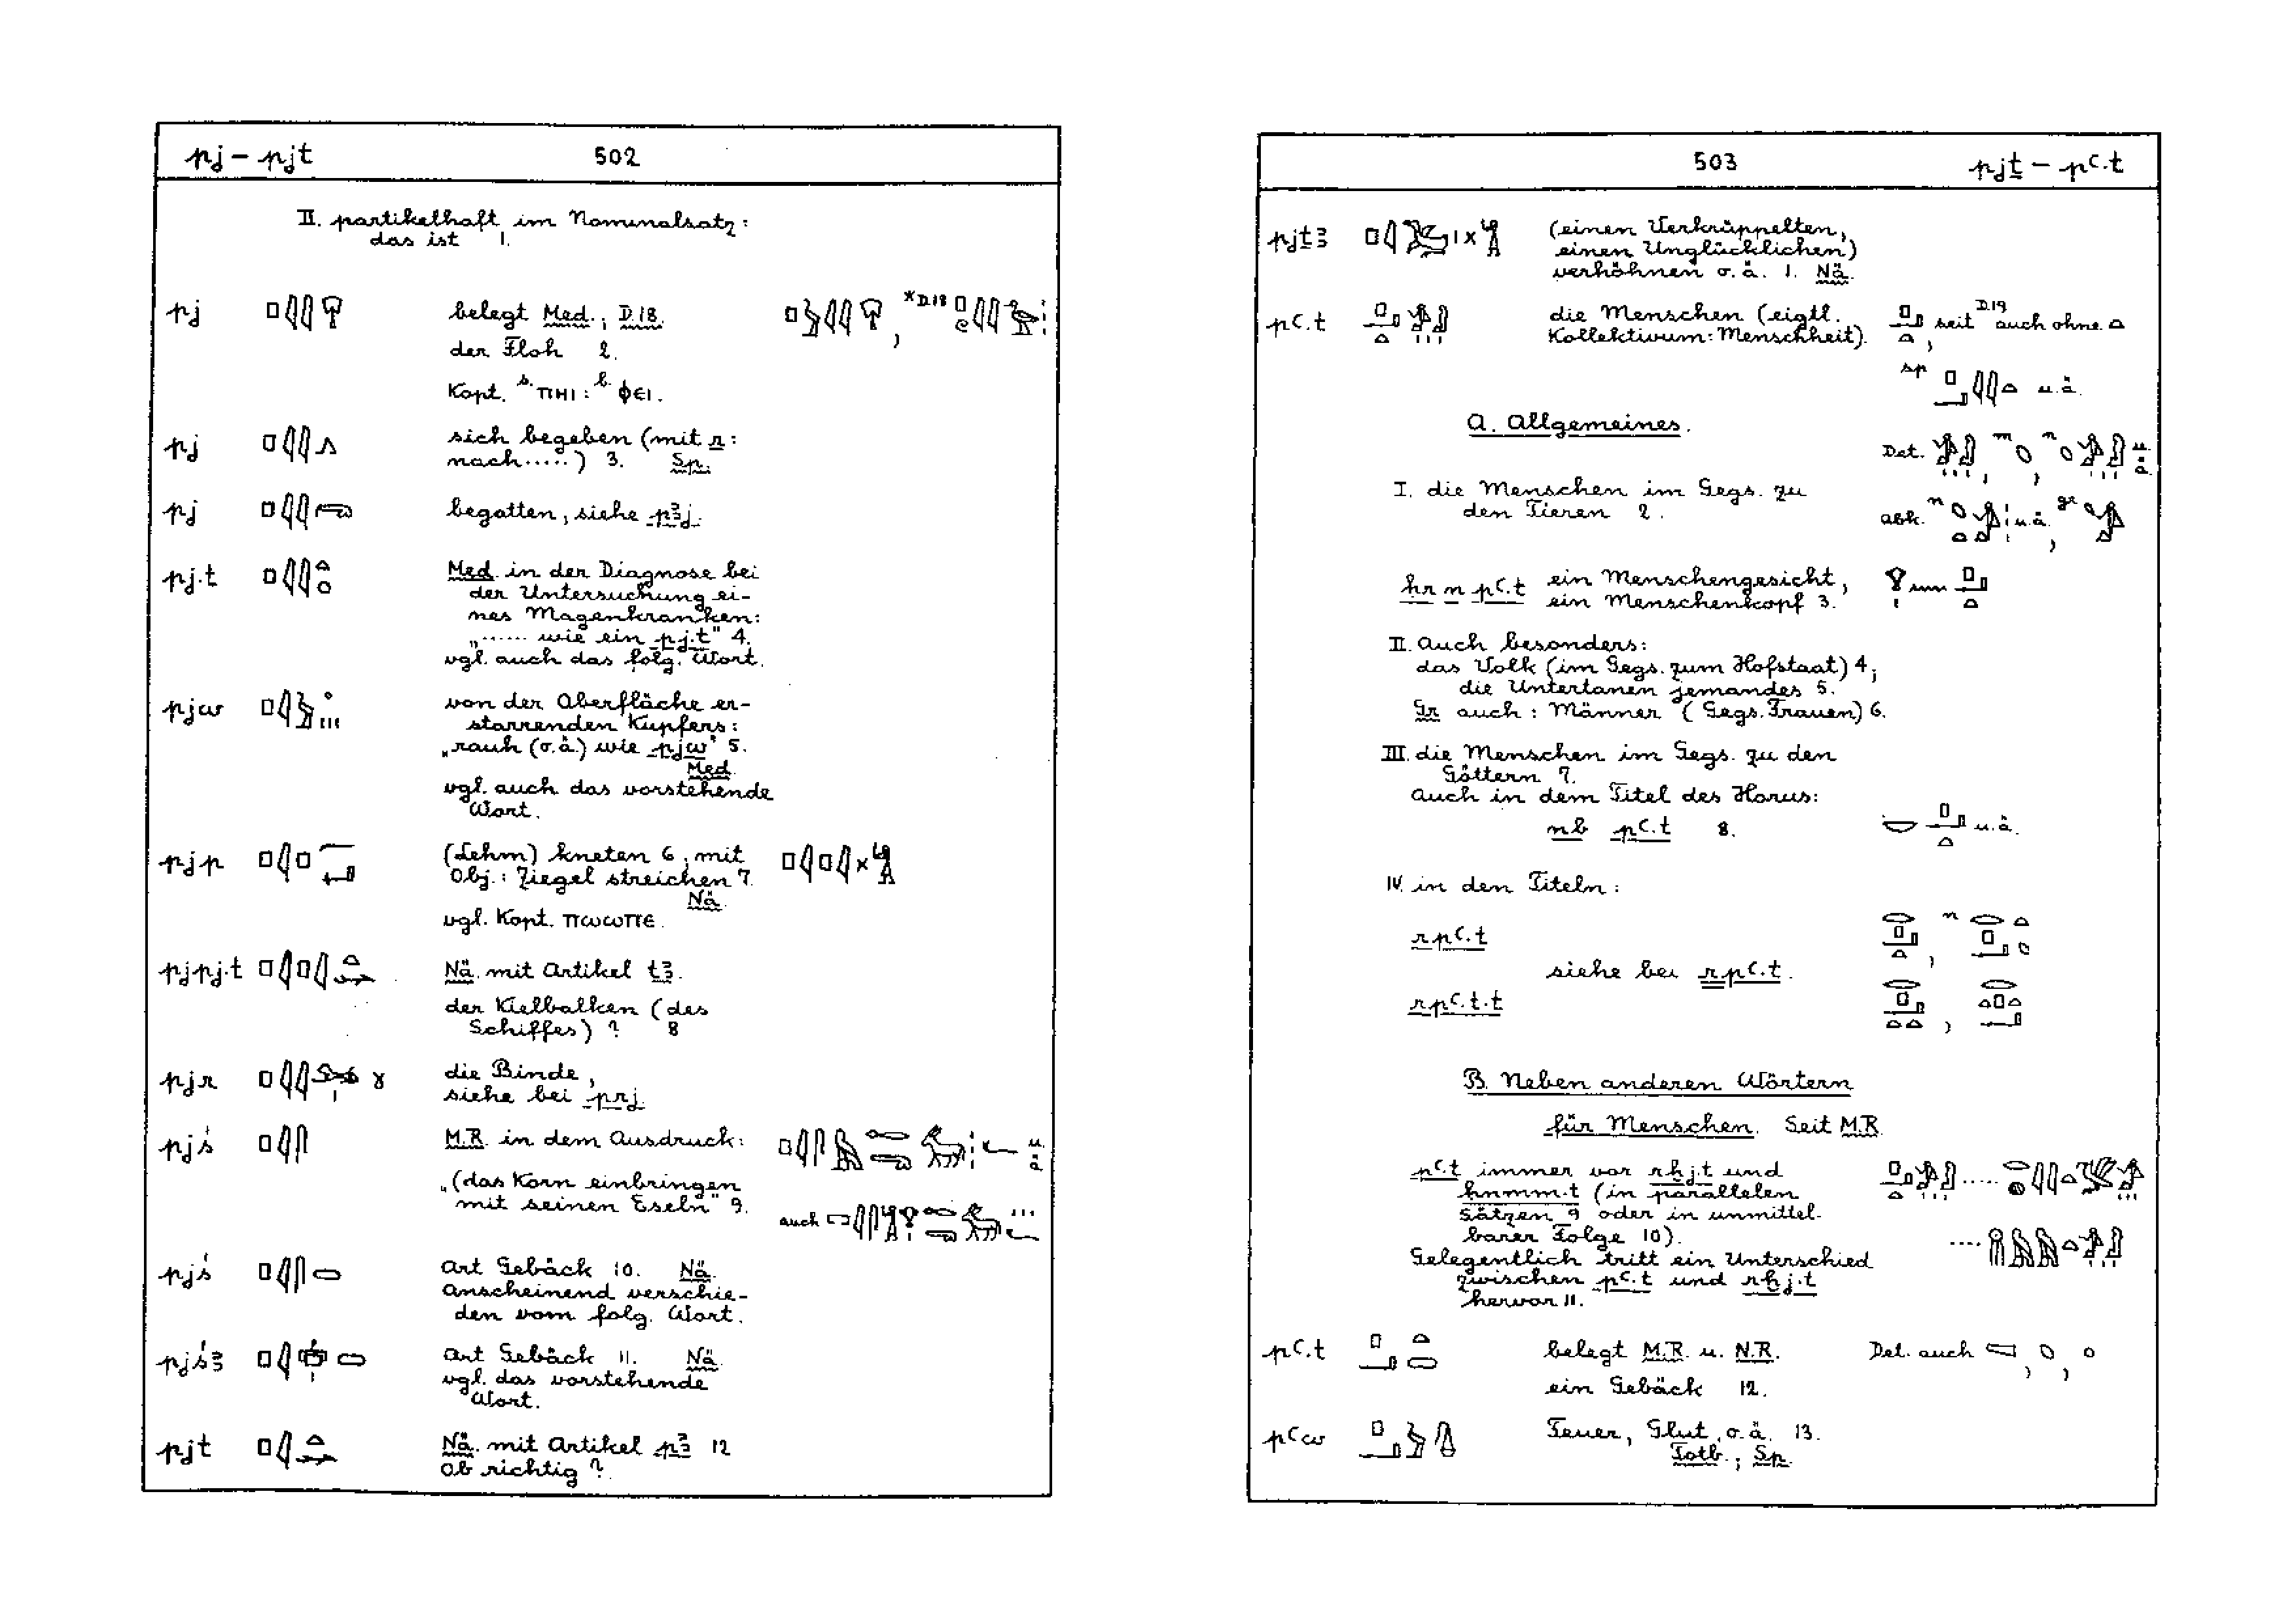 pj – pjt 502
II. partikelhaft im Nominalsatz:
das ist 1.
pj belegt Med.; D.18.
*D.18
der Floh 2.
Kopt. s. ⲡⲏⲓ : b. ⲫⲉⲓ.
pj sich begeben (mit r:
nach.....) 3. Sp.
pj begatten, siehe pꜣj.
pj.t Med. in der Diagnose bei
der Untersuchung ei-
nes Magenkranken:
„...... wie ein pj.t" 4.
vgl. auch das folg. Wort.
pjw von der Oberfläche er-
starrenden Kupfers:
„rauh (o.ä.) wie pjw" 5.
Med.
vgl. auch das vorstehende
Wort.
pjp (Lehm) kneten 6, mit
Obj.: Ziegel streichen 7.
Nä.
vgl. Kopt. ⲡⲱⲱⲡⲉ.
pjpj.t Nä. mit Artikel tꜣ.
der Kielbalken (des
Schiffes) ? 8
pjr die Binde,
siehe bei prj.
pjś M.R. in dem Ausdruck: u.
ä.
„(das Korn einbringen
mit seinen Eseln" 9.
auch
pjś Art Gebäck 10. Nä.
Anscheinend verschie-
den vom folg. Wort.
pjśꜣ Art Gebäck 11. Nä.
vgl. das vorstehende
Wort.
pjt Nä. mit Artikel pꜣ 12
Ob richtig ?
503 pjṯ – pꜥ.t
pjṯꜣ (einen Verkrüppelten,
einen Unglücklichen)
verhöhnen o.ä. 1. Nä.
pꜥ.t die Menschen (eigtl. seit D.19 auch ohne
Kollektivum: Menschheit).
sp u.ä.
A. Allgemeines.
Det. m n u.
ä.
I. die Menschen im Gegs. zu
den Tieren 2.
abk. n u.ä. gr
ḥr n pꜥ.t ein Menschengesicht,
ein Menschenkopf 3.
II. Auch besonders:
das Volk (im Gegs. zum Hofstaat) 4;
die Untertanen jemandes 5.
Gr auch: Männer (Gegs. Frauen) 6.
III. die Menschen im Gegs. zu den
Göttern 7.
Auch in dem Titel des Horus:
nb pꜥ.t 8. u.ä.
IV. in den Titeln:
rpꜥ.t n
siehe bei rpꜥ.t.
rpꜥ.t.t
B. Neben anderen Wörtern
für Menschen. Seit M.R.
pꜥ.t immer vor rḫj.t und
ḥnmm.t (in parallelen
Sätzen 9 oder in unmittel-
barer Folge 10).
Gelegentlich tritt ein Unterschied
zwischen pꜥ.t und rḫj.t
hervor 11.
pꜥ.t belegt M.R. u. N.R. Det. auch
ein Gebäck 12.
pꜥw Feuer, Glut, o.ä. 13.
Totb.; Sp.